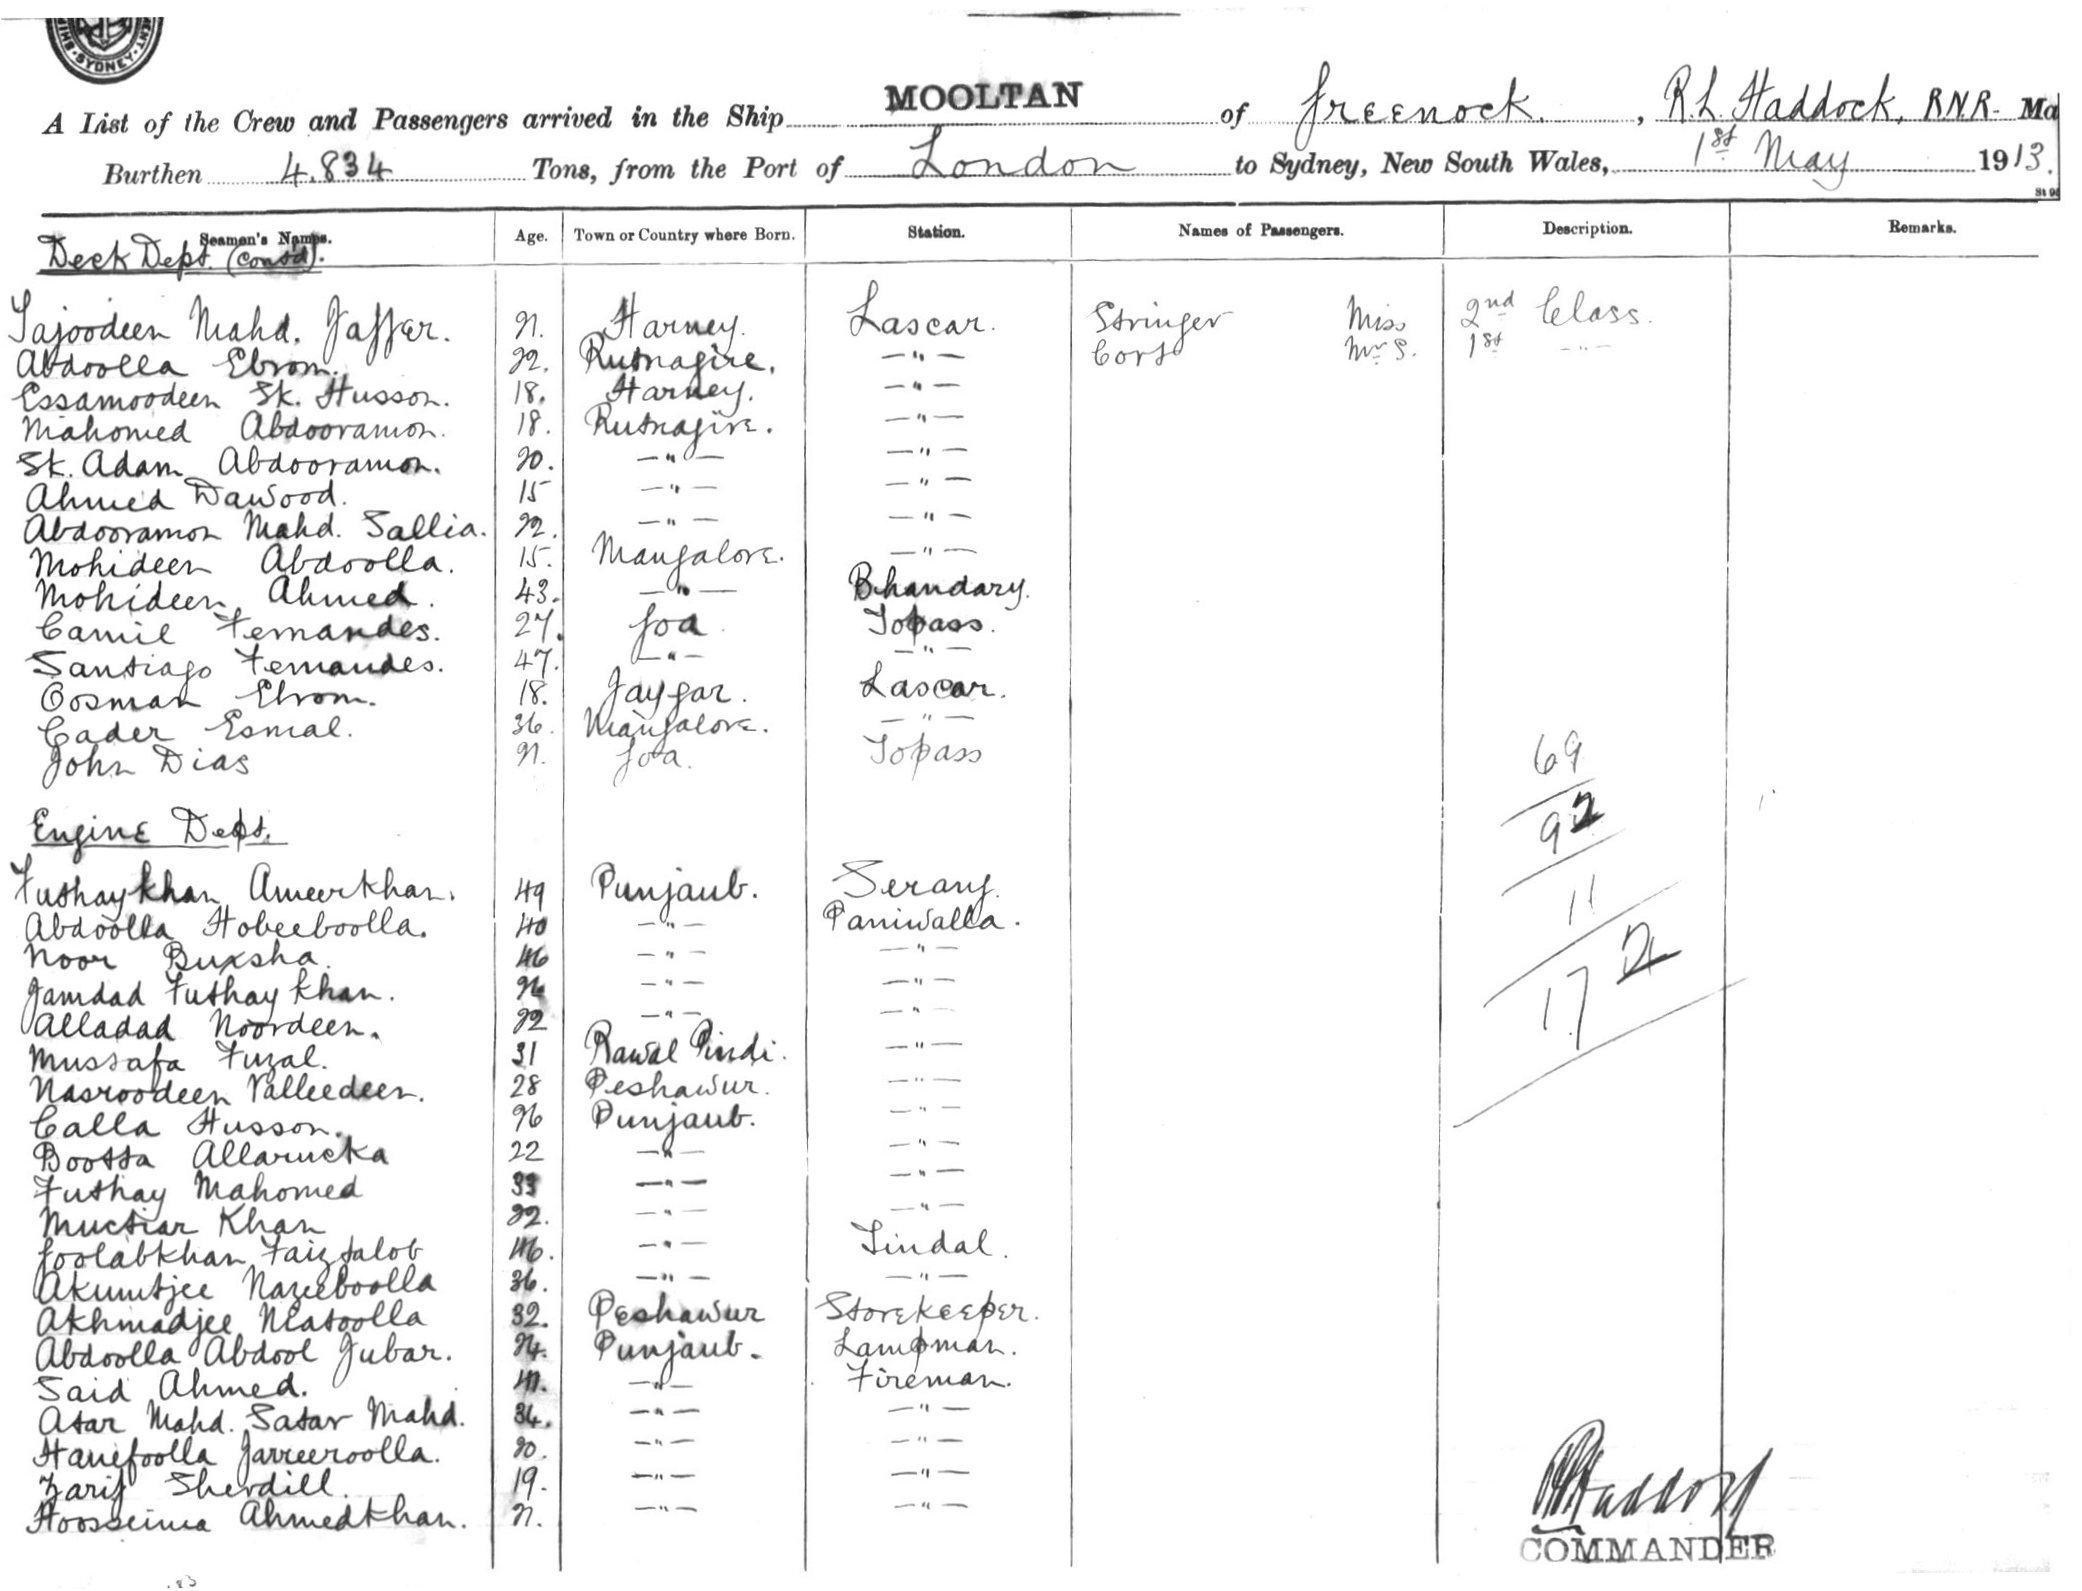 SYDNEY
MOOLTAN
A List of the Crew and Passengers arrived in the Ship MOOLTAN of Greenock. , R.L. Haddock, R.N.R. Ma
Burthen 4.834 Tons, from the Port of London to Sydney, New South Wales, 1st May 1913.
Seamen's Names. Age. Town or Country where Born. Station. Names of Passengers. Description. Remarks.
Deck Dept. (contd).
Tajoodeen Mahd. Jaffer. 21. Harney. Lascar. Stringer Miss 2nd Class.
Abdoolla Ebrom. 22. Rutnagire. —"— Cort Mr S. 1st —"—
Essamoodeen Sk. Husson. 18. Harney. —"—
Mahomed Abdooramon. 18. Rutnagire. —"—
Sk. Adam Abdooramon. 20. —"— —"—
Ahmed Dawood. 15 —"— —"—
Abdooramon Mahd. Sallia. 22. —"— —"—
Mohideen Abdoolla. 15. Mangalore. —"—
Mohideen Ahmed. 43. —"— Bhandary.
Camil Fernandes. 27. Goa Topass.
Santiago Fernandes. 47. —"— —"—
Oosman Ebrom. 18. Jaygar. Lascar.
Cader Esmal. 36. Mangalore. —"—
John Dias 21. Goa. Topass
69
92
11
172
Engine Dept.
Futhaykhan Ameerkhan. 49 Punjaub. Serang.
Abdoolla Hobeeboolla. 40 —"— Paniwalla.
Noor Buxsha. 46 —"— —"—
Jamdad Futhaykhan. 26 —"— —"—
Alladad Noordeen. 22 —"— —"—
Mussafa Fuzal. 31 Rawal Pindi. —"—
Nasroodeen Valleedeen. 28 Peshawur. —"—
Calla Husson. 26 Punjaub. —"—
Bootta Allarucka 22 —"— —"—
Futhay Mahomed 33 —"— —"—
Muctiar Khan 22. —"— —"—
Goolabkhan Faiztalob 46. —"— Tindal.
Akumtjee Nazeeboolla 36. —"— —"—
Akhmadjee Neatoolla 32. Peshawur Storekeeper.
Abdoolla Abdool Jubar. 24. Punjaub. Lampman.
Said Ahmed. 41. —"— Fireman.
Atar Mahd. Satar Mahd. 34. —"— —"—
Hanefoolla Jarreeroolla. 20. —"— —"—
Zarif Sherdill. 19. —"— —"—
Hoosseinia Ahmedkhan. 21. —"— —"—
Haddock
COMMANDER